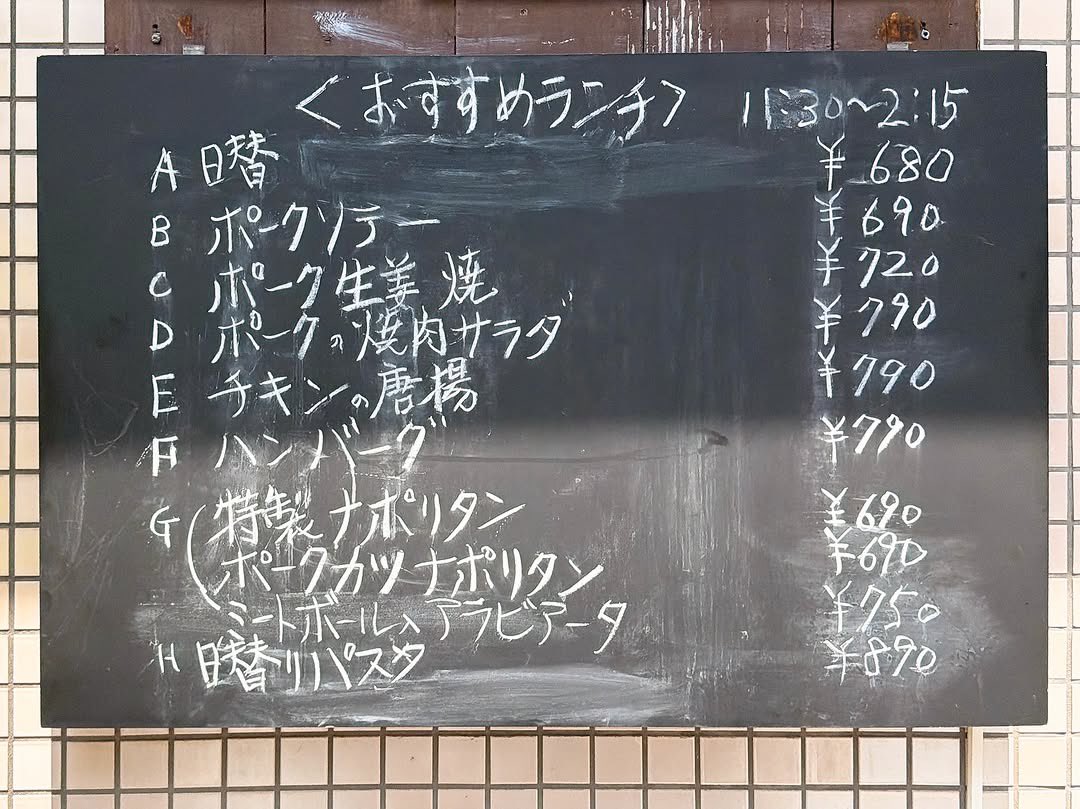 <おすすめランチ> 11:30~2:15
A 日替 ¥680
B ポークソテー ¥690
C ポーク生姜焼 ¥720
D ポークの焼肉サラダ ¥790
E チキンの唐揚 ¥790
F ハンバーグ ¥790
G 特製ナポリタン ¥690
ポークカツナポリタン ¥690
ミートボール、アラビアータ ¥750
H 日替りパスタ ¥890